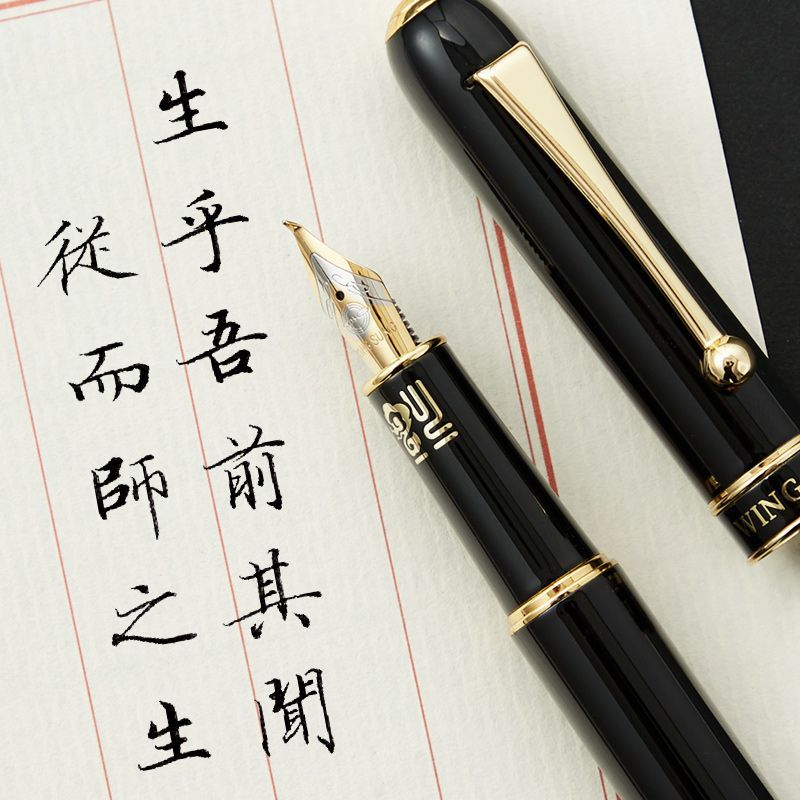 生乎吾前其聞
從而師之生
WING